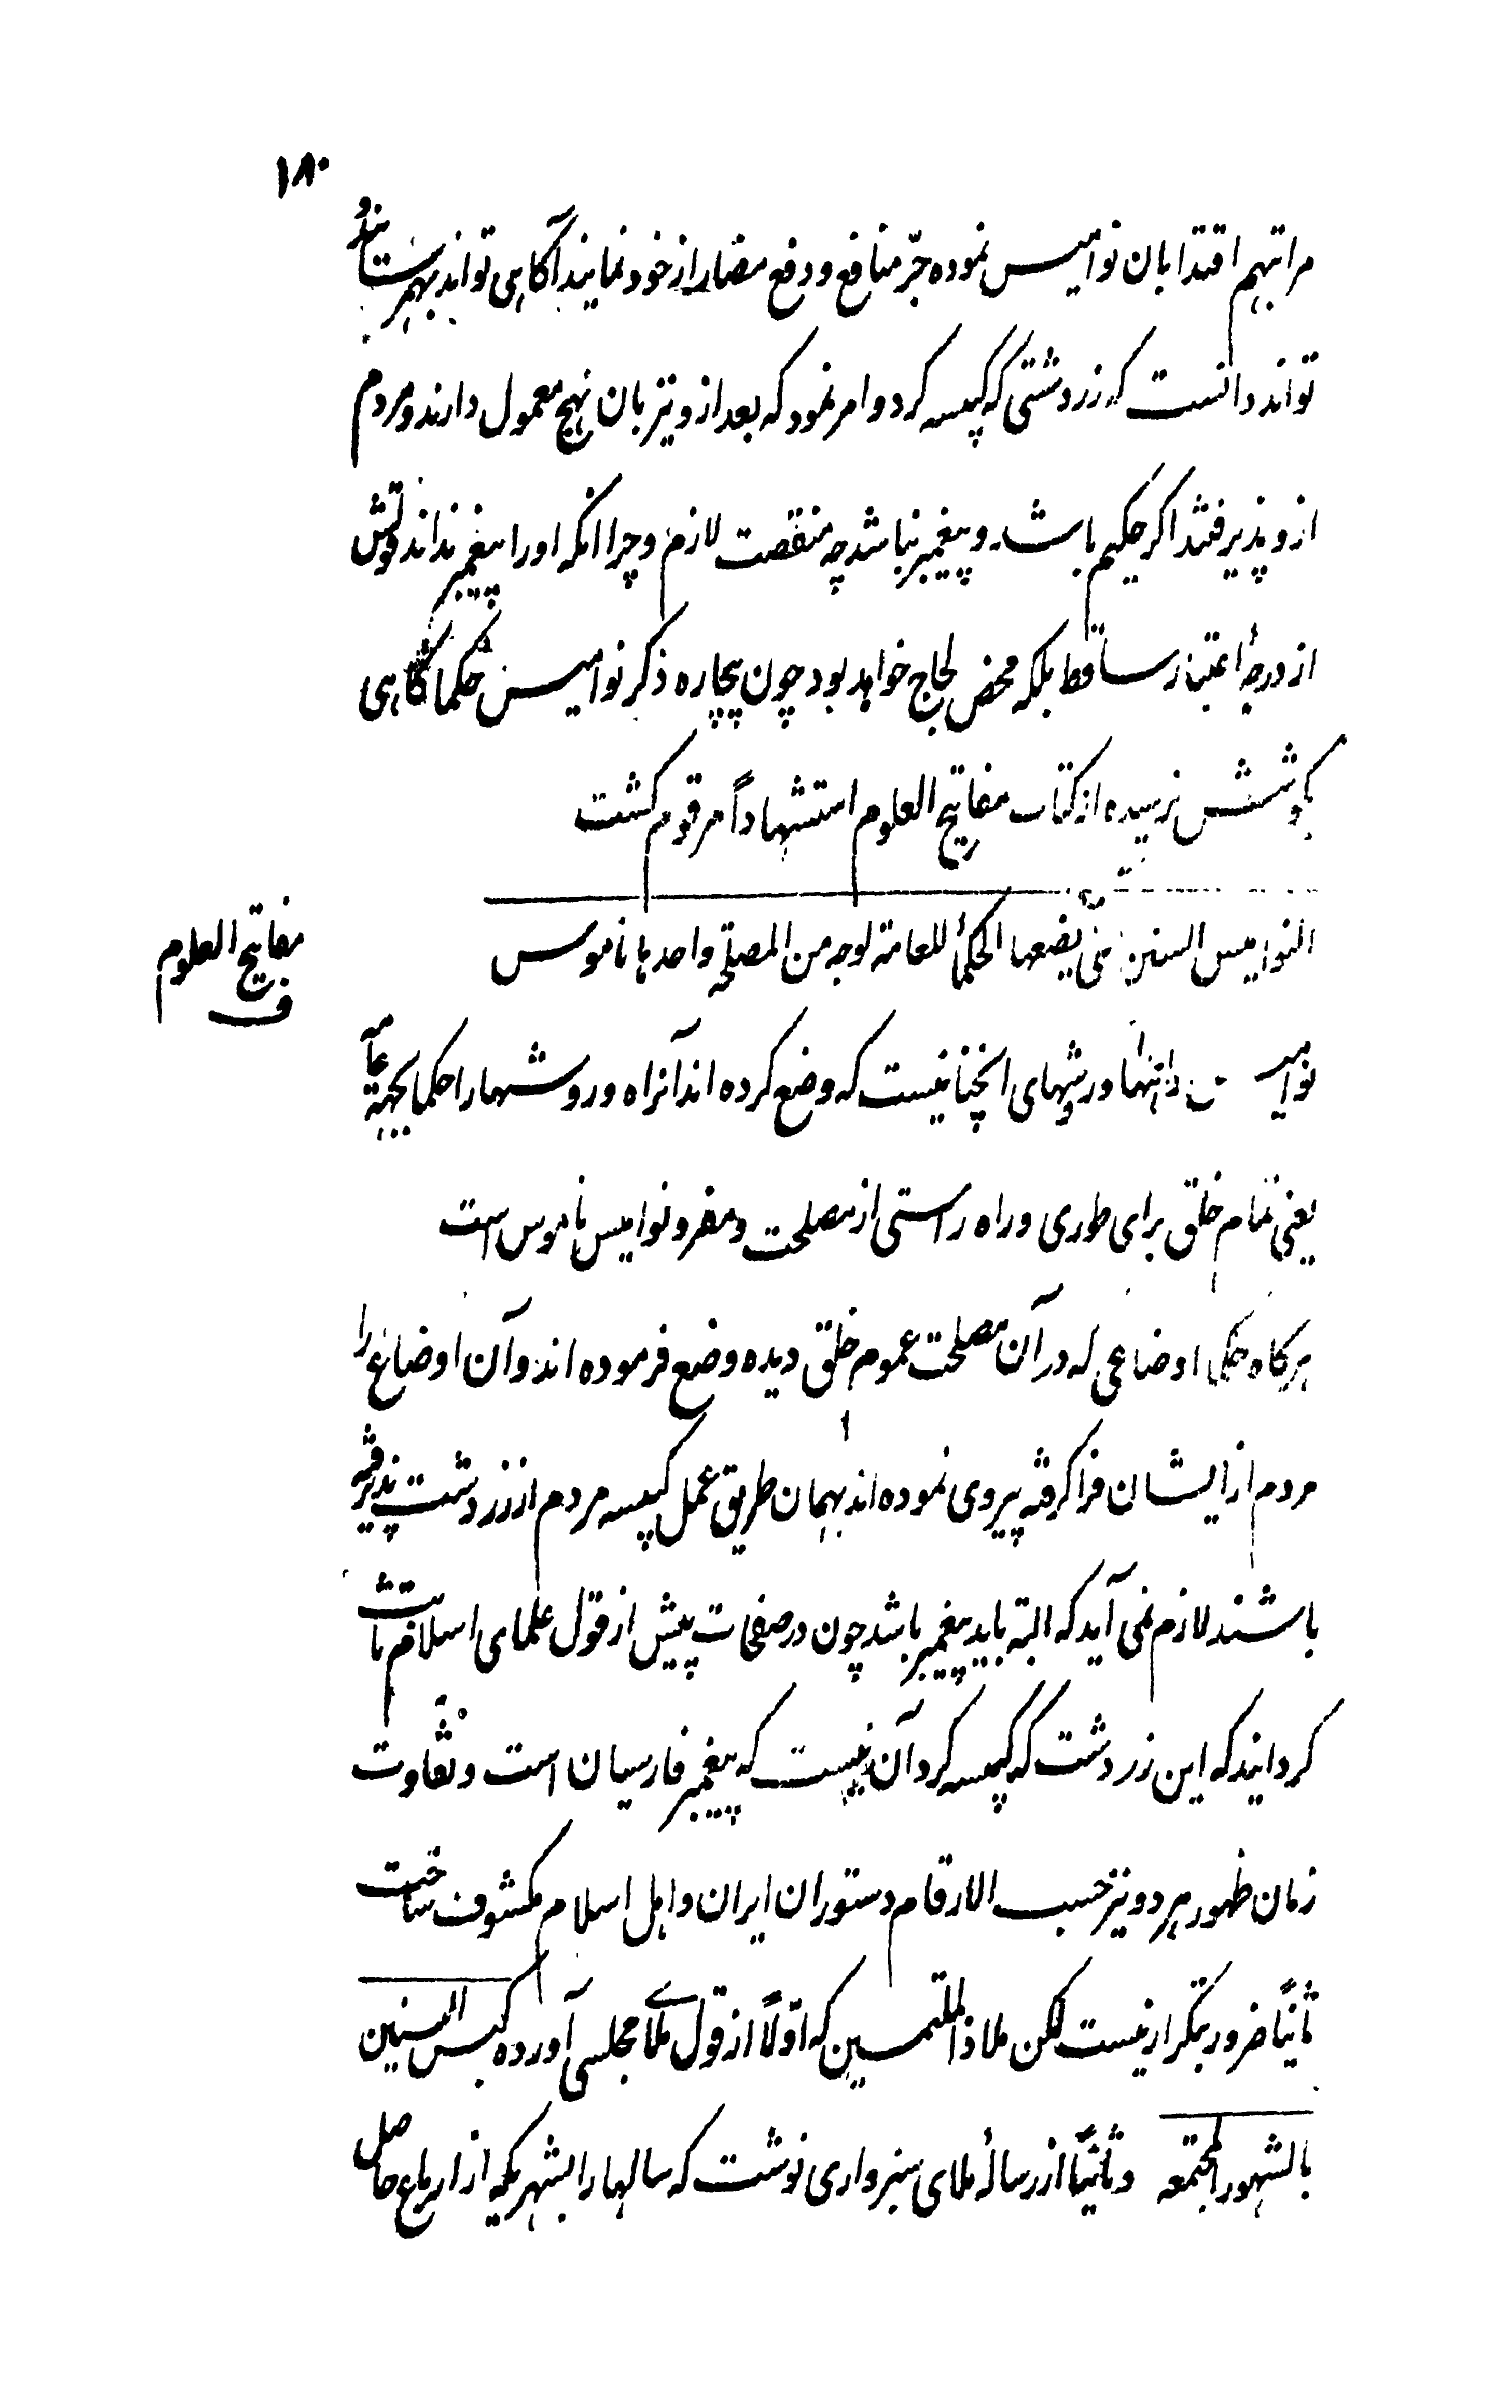 ۱۸۰
مراتبهم اقتدا بان نوامیس نموده جرّ منافع و دفع مضار از خود نمایند آگاهی تواند بهمرسانید و
تواند دانست که زردشتی که کپیسه کرد و امر نمود که بعد از و نیز بان نهج معمول دارند و مردم
از و پذیرفتند اکر حکیم باشد و پیغمبر نباشد چه منقصت لازم و چرا انکه او را پیغمبر نداند قولش
از درجهٔ اعتبار ساقط بلکه محض لجاج خواهد بود چون بیچاره ذکر نوامیس حکما کاهی
بکوشش نرسیده از کتاب مفاتیح العلوم استشهاداً مرقوم کشت
النوامیس السنن التی یضعها الحکمأ للعامة لوجه من المصلحة واحدها ناموس
مفاتیح العلوم
ف
نوامیس راهها و روشهای انچنانیست که وضع کرده اند آنراه و روشها را حکما بجهة عامّه
یعنی تمام خلق برای طوری و راه راستی از مصلحت و مفرد نوامیس ناموس است
هرکاه حکما اوضاعی که در آن مصلحت عموم خلق دیده وضع فرموده اند و آن اوضاع را
مردم از ایشان فرا کرفته پیروی نموده اند بهمان طریق عمل کپیسه مردم از زردشت پذیرفته
باشند لازم نمی آید که البته باید پیغمبر باشد چون در صفحات پیش از قول علمای اسلام ثابت
کردانید که این زردشت که کپیسه کرد آن نیست که پیغمبر فارسیان است و تفاوت
زمان ظهور هر دو نیز حسب الارقام دستوران ایران و اهل اسلام مکشوف ساخت
ثانیاً ضرور بتکرار نیست لکن ملاذ الملتمسین که اوّلاً از قول ملای مجلسی آورده کبس السنین
بالشهور المجتمعه و ثانیاً از رسالهٔ ملای سبزواری نوشت که سالها را بشهریکه از ارباع حاصل